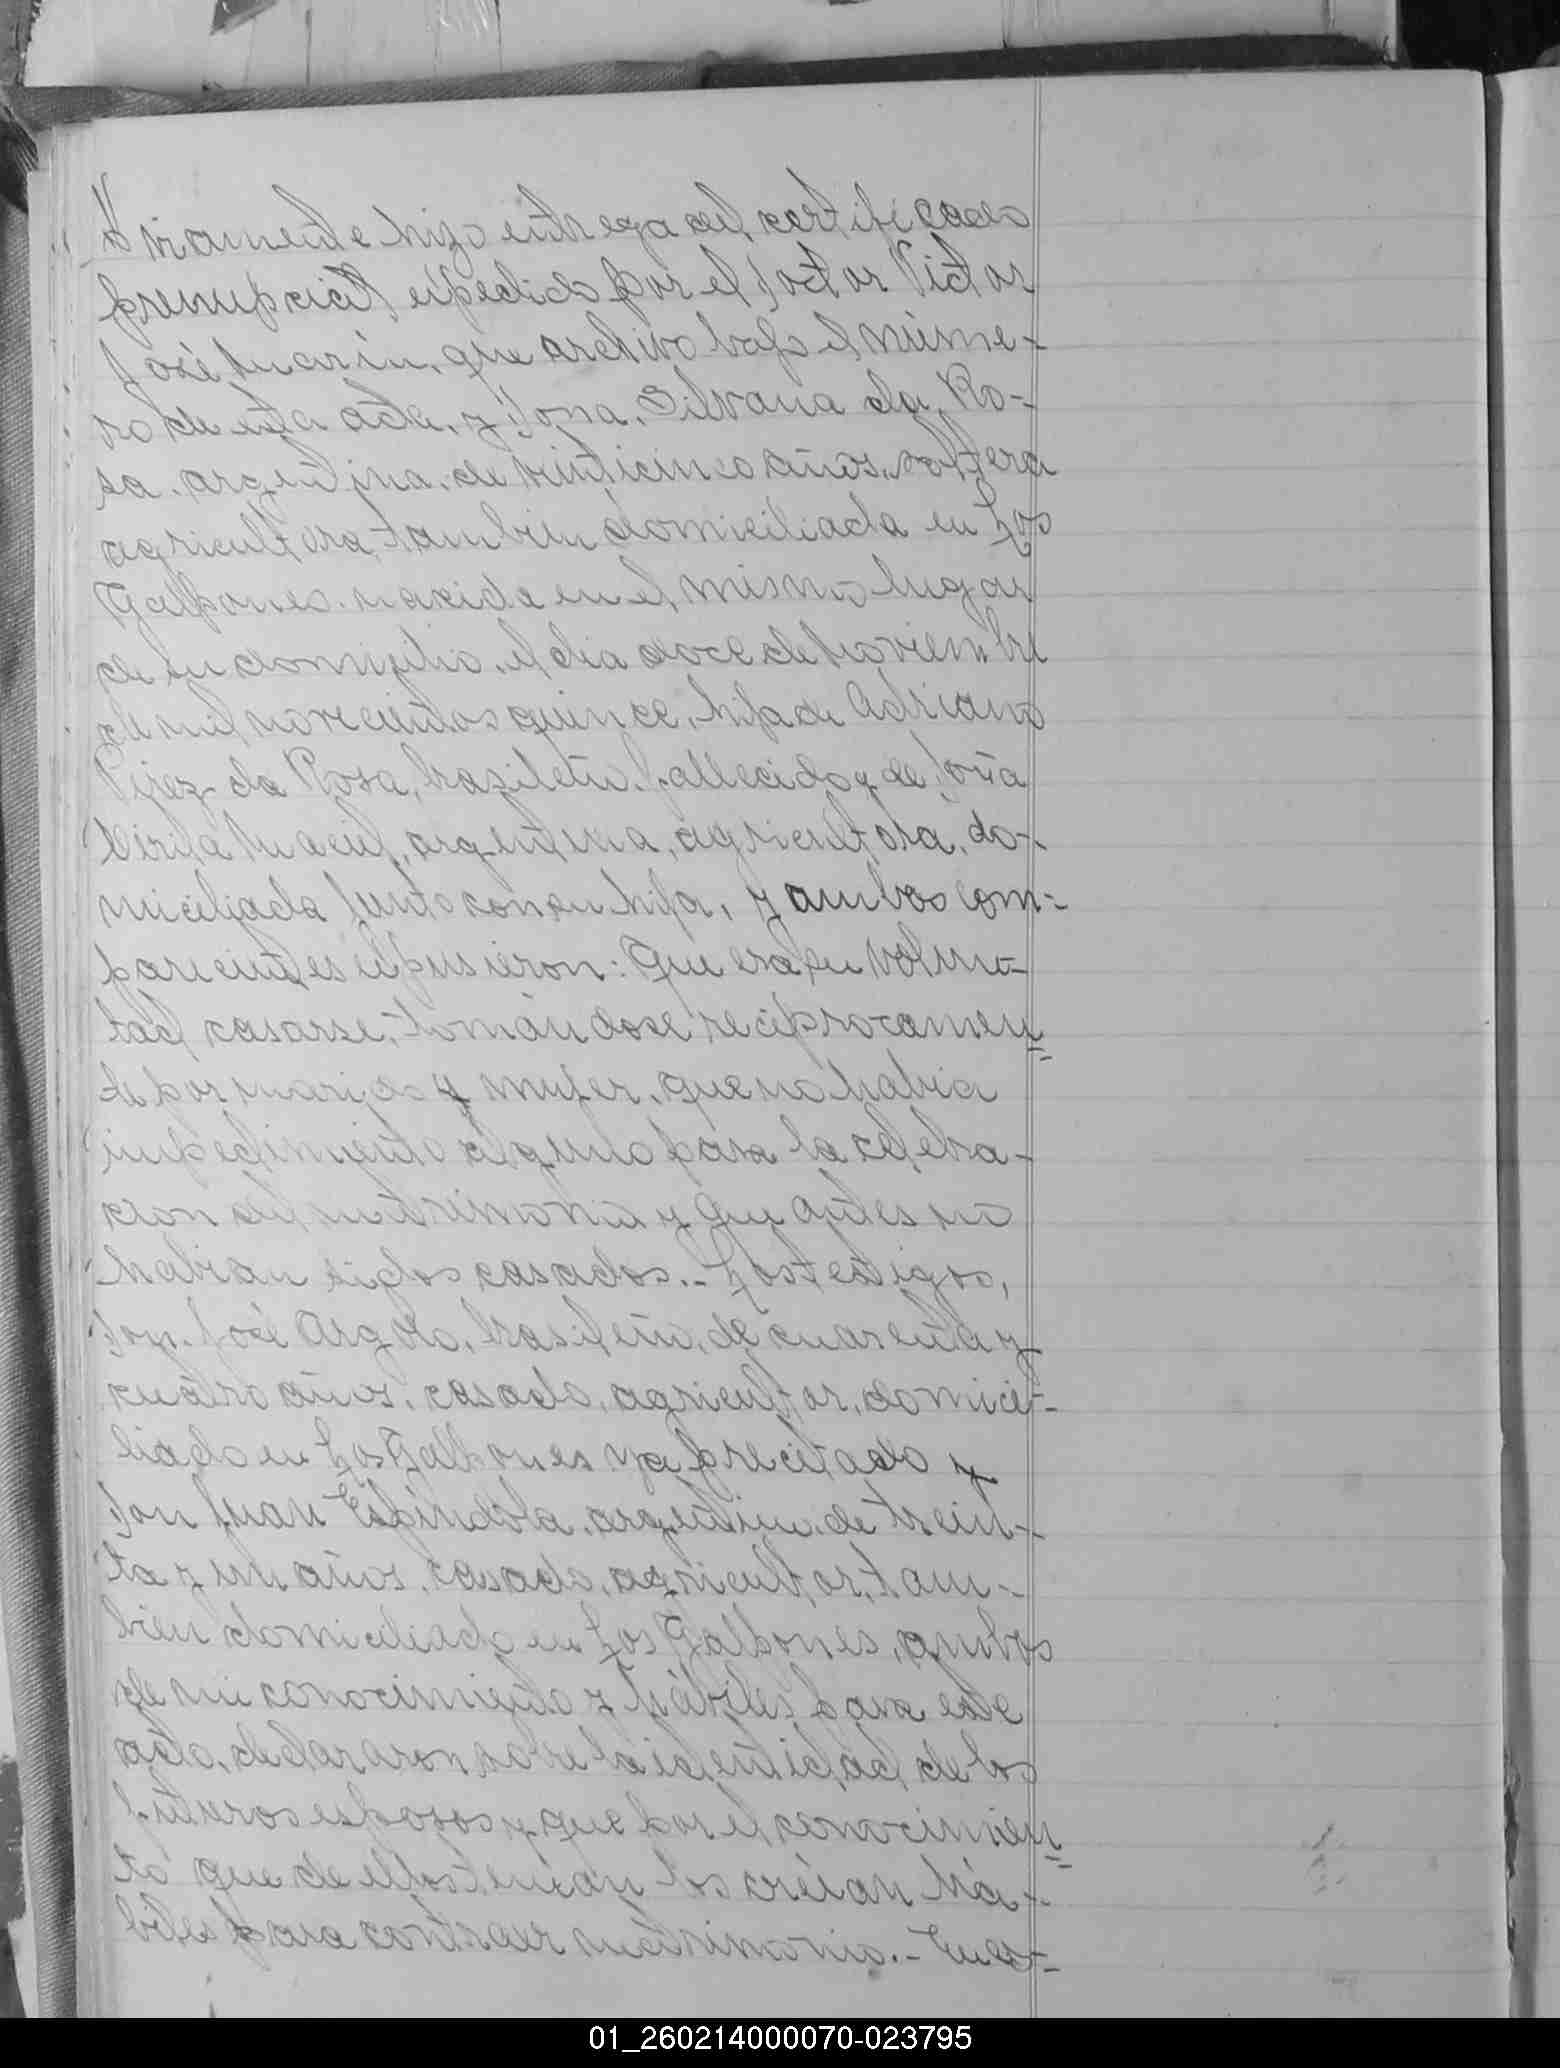 viamente hizo entrega del certificado
prenupcial, expedido por el Doctor Victor
José Marin, que archivo bajo el núme-
ro de esta acta, y Dona, Silvana da Ro-
sa. argentina, de vinticinco años, soltera
agricultora, tambien domiciliada en Los
Galpones. nacida en el mismo lugar
de su domicilio, el dia doce de Noviembre
de mil novecientos quince, hija de Adriano
Pirez da Rosa, brasileño, fallecido y de Doña
Maciel, argentina, agricultora, do-
miciliada junto con su hija, y ambos com-
parecientes expusieron: Que era su volun-
tad casarse, tomándose reciprocamen=
te por marido y mujer, que no habia
impedimento alguno para la celebra-
cion del matrimonio y que antes no
habian sidos casados.- Los testigos,
Don. José Argolo, brasileño, de cuarenta y
cuatro años, casado, agricultor, domici-
liado en Los Galpones ya precitado y
Don Juan Espindola, argentino, de trein-
ta y un años, casado, agricultor, tam-
bien domiciliado en Los Galpones, ambos
de mi conocimiento y hábiles para este
acto, declararon sobre la identidad de los
futuros esposos y que por el conocimien=
to que de ellos tenian los creian há-
biles para contraer matrimonio.-
01_260214000070-023795